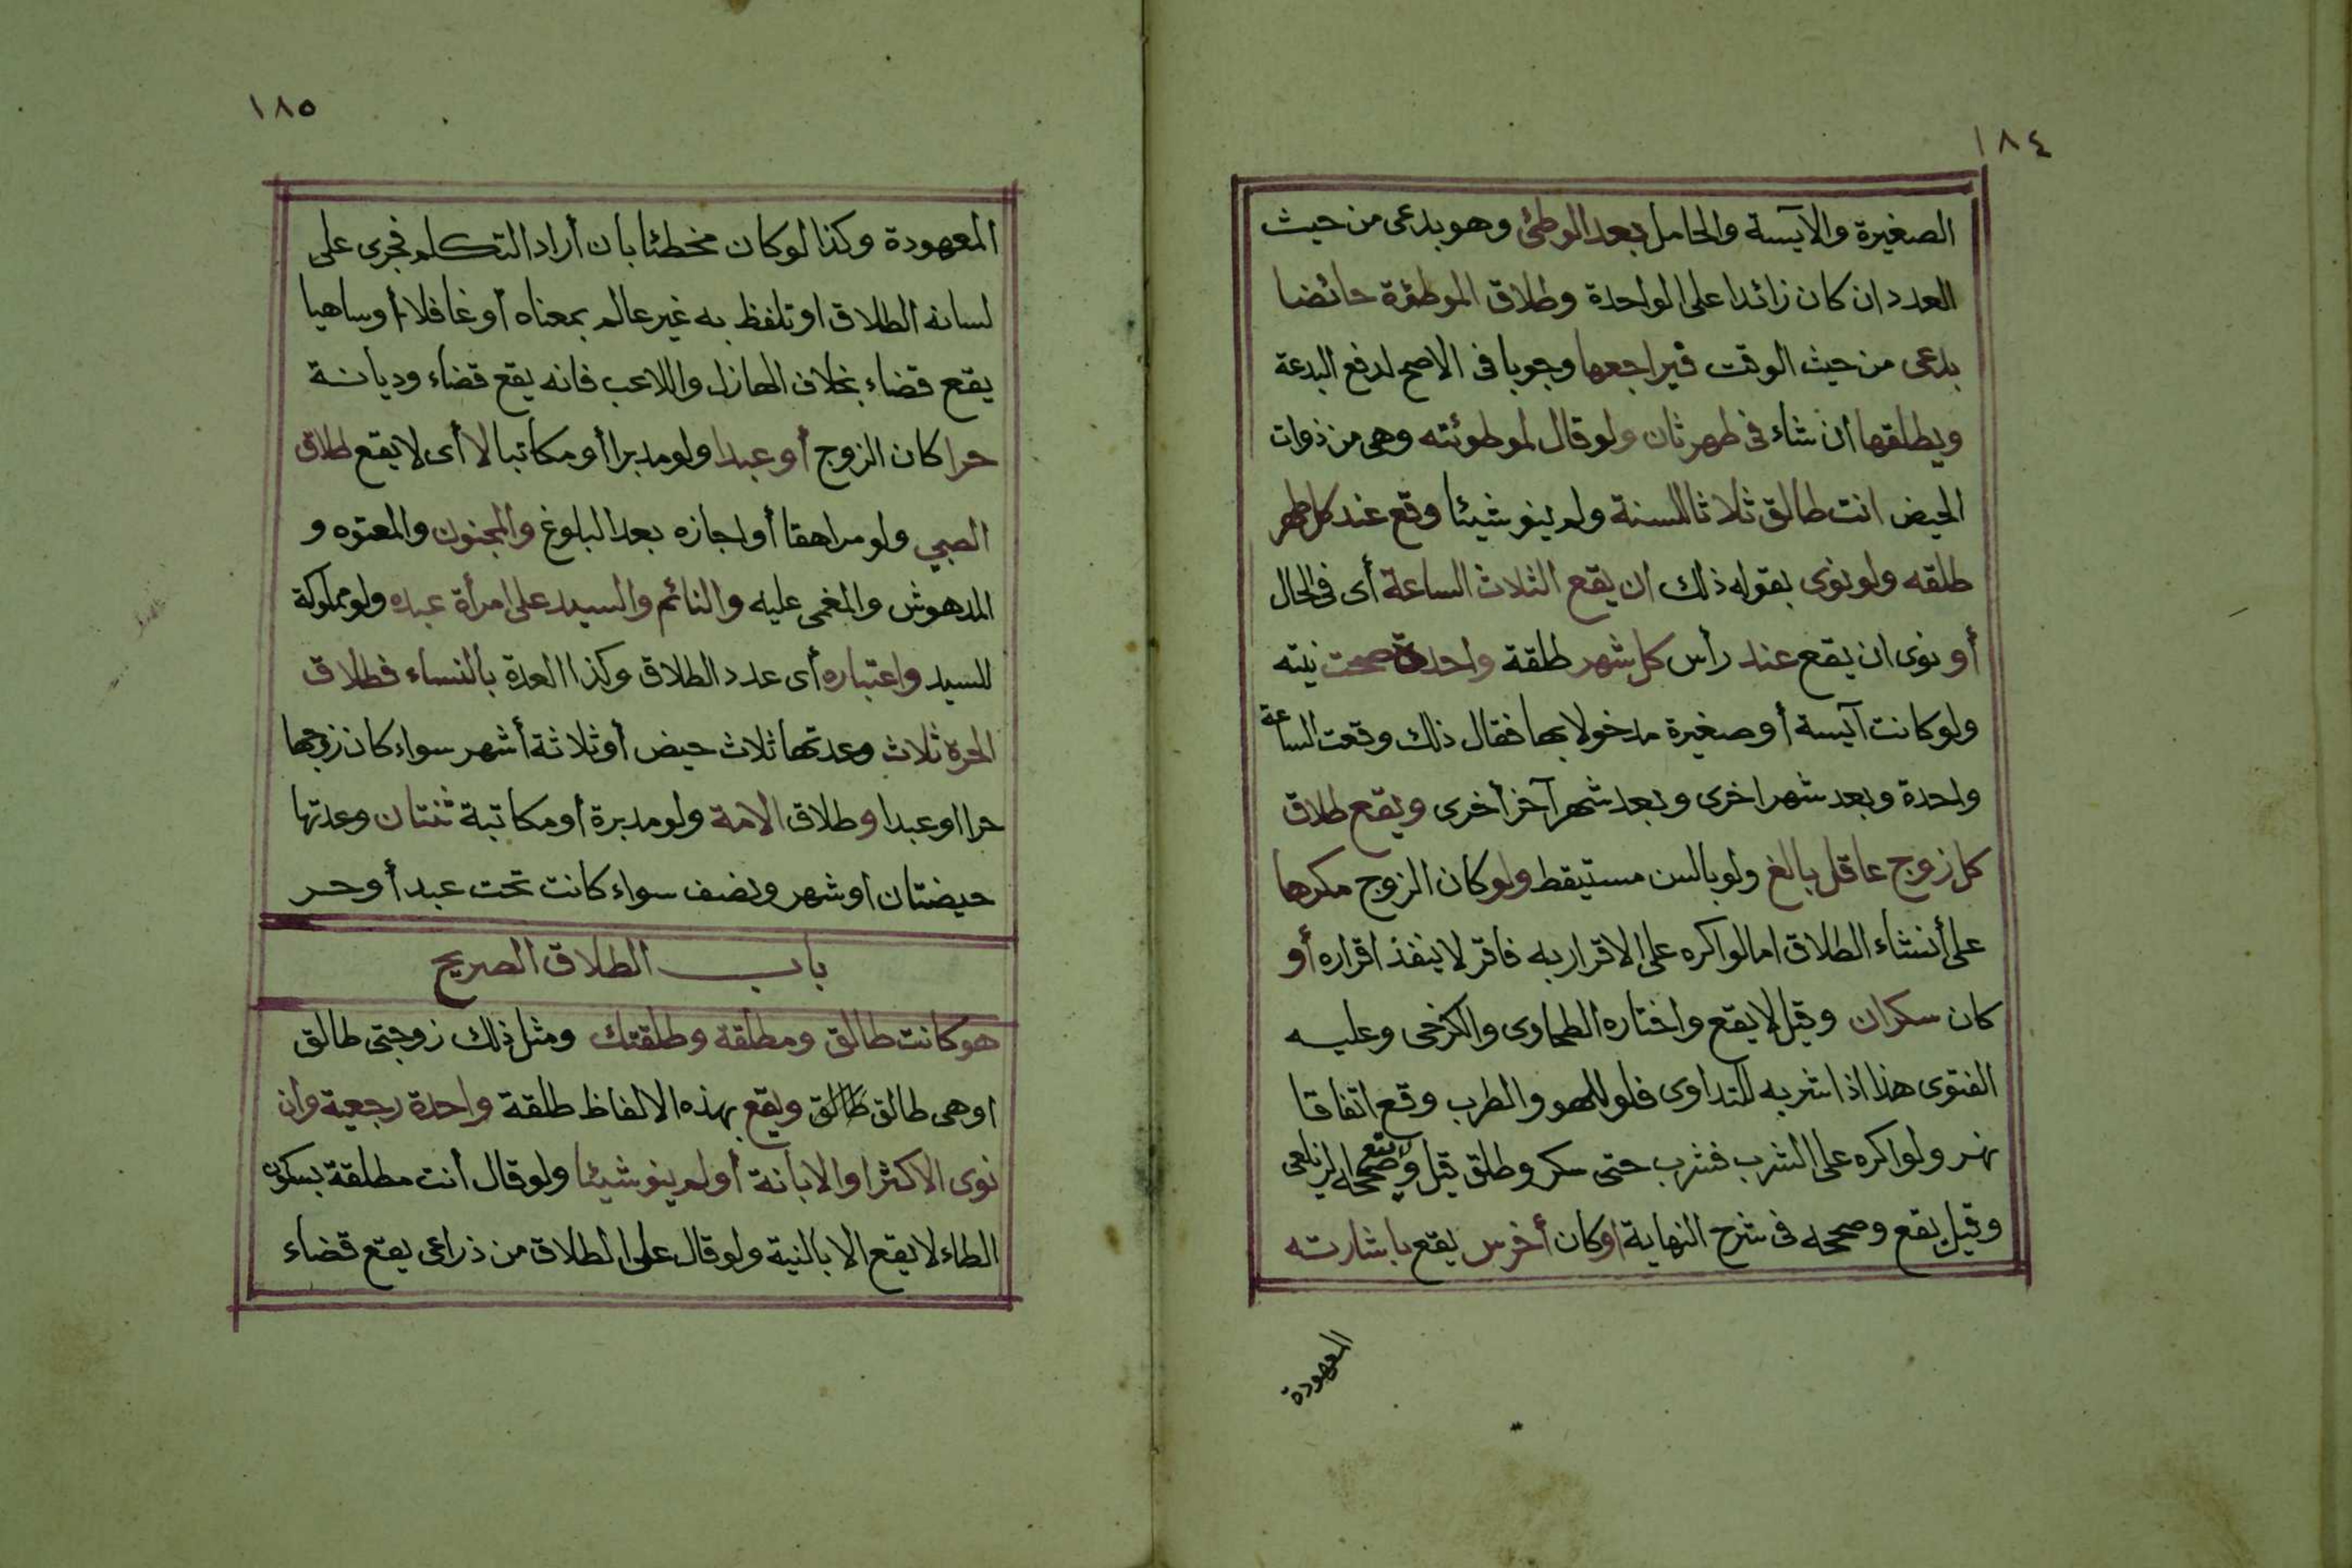 ١٨٤
الصغيرة والآيسة والحامل بعد الوطئ وهو بدعى من حيث
العدد ان كان زائدا على الواحدة وطلاق الموطؤة حائضا
بدعى من حيث الوقت فيراجعها وجوبا فى الاصح لدفع البدعة
ويطلقها أن شاء فى طهر ثان ولو قال لموطوئته وهى من ذوات
الحيض انت طالق ثلاثا للسنة ولم ينو شيئا وقع عند كل طهر
طلقه ولو نوى بقوله ذلك ان يقع الثلاث الساعة أى فى الحال
أو نوى ان يقع عند رأس كل شهر طلقة واحدة صحت نيته
ولو كانت آيسة أو صغيرة مدخولا بها فقال ذلك وقعت الساعة
واحدة وبعد شهر اخرى وبعد شهر آخر أخرى ويقع طلاق
كل زوج عاقل بالغ ولو بالسن مستيقط ولو كان الزوج مكرها
على أنشاء الطلاق اما لو اكره على الاقرار به فاقر لا ينفذ اقراره أو
كان سكران وقيل لا يقع واختاره الطحاوى والكرخى وعليه
الفتوى هذا اذا شربه للتداوى فلو للهو والطرب وقع اتفاقا
نهر ولو اكره على الشرب فشرب حتى سكر وطلق قيل لا يقع وصححه الزيلعى
وقيل يقع وصححه فى شرح النهاية او كان أخرس يقع باشارته
المعهودة
١٨٥
المعهودة وكذا لو كان مخطئا بان أراد التكلم فجرى على
لسانه الطلاق او تلفظ به غير عالم بمعناه أو غافلا أو ساهيا
يقع قضاء بخلاف الهازل واللاعب فانه يقع قضاء وديانة
حرا كان الزوج أو عبدا ولو مدبرا أو مكاتبا لا أى لا يقع طلاق
الصبي ولو مراهقا أو اجازه بعد البلوغ والمجنون والمعتوه و
المدهوش والمغمى عليه والنائم والسيد على امرأة عبده ولو مملوكة
للسيد واعتباره أى عدد الطلاق وكذا العدة بالنساء فطلاق
الحرة ثلاث وعدتها ثلاث حيض أو ثلاثة أشهر سواء كان زوجها
حرا او عبدا وطلاق الامة ولو مدبرة أو مكاتبة ثنتان وعدتها
حيضتان او شهر ونصف سواء كانت تحت عبد أو حر
باب الطلاق الصريح
هو كانت طالق ومطلقة وطلقتك ومثل ذلك زوجتى طالق
او هى طالق طالق ويقع بهذه الالفاظ طلقة واحدة رجعية وان
نوى الاكثر او الابانة أو لم ينو شيئا ولو قال أنت مطلقة بسكون
الطاء لا يقع الا بالنية ولو قال على الطلاق من ذراعى يقع قضاء